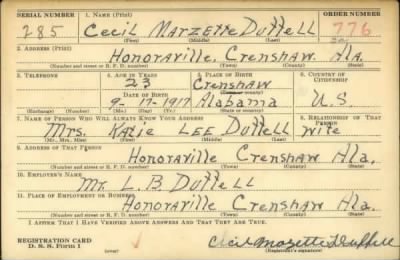 SERIAL NUMBER 1. NAME (Print) ORDER NUMBER
285 Cecil Marzette Duffell 776
(First) (Middle) (Last)
2. ADDRESS (Print)
Honoraville, Crenshaw, Ala.
(Number and street or R. F. D. number) (Town) (County) (State)
3. TELEPHONE 4. AGE IN YEARS 5. PLACE OF BIRTH 6. COUNTRY OF CITIZENSHIP
23 Crenshaw
DATE OF BIRTH (Town or county)
9- 17-1917 Alabama U.S.
(Exchange) (Number) (Mo.) (Day) (Yr.) (State or country)
7. NAME OF PERSON WHO WILL ALWAYS KNOW YOUR ADDRESS 8. RELATIONSHIP OF THAT PERSON
Mrs. Katie LEE Duffell wife
(Mr., Mrs., Miss) (First) (Middle) (Last)
9. ADDRESS OF THAT PERSON
Honoraville Crenshaw Ala.
(Number and street or R. F. D. number) (Town) (County) (State)
10. EMPLOYER'S NAME
Mr. L. B. Duffell
11. PLACE OF EMPLOYMENT OR BUSINESS
Honoraville Crenshaw Ala.
(Number and street or R. F. D. number) (Town) (County) (State)
I AFFIRM THAT I HAVE VERIFIED ABOVE ANSWERS AND THAT THEY ARE TRUE.
REGISTRATION CARD
D. S. S. FORM 1 (over) Cecil Mozette Duffell
(Registrant's signature)